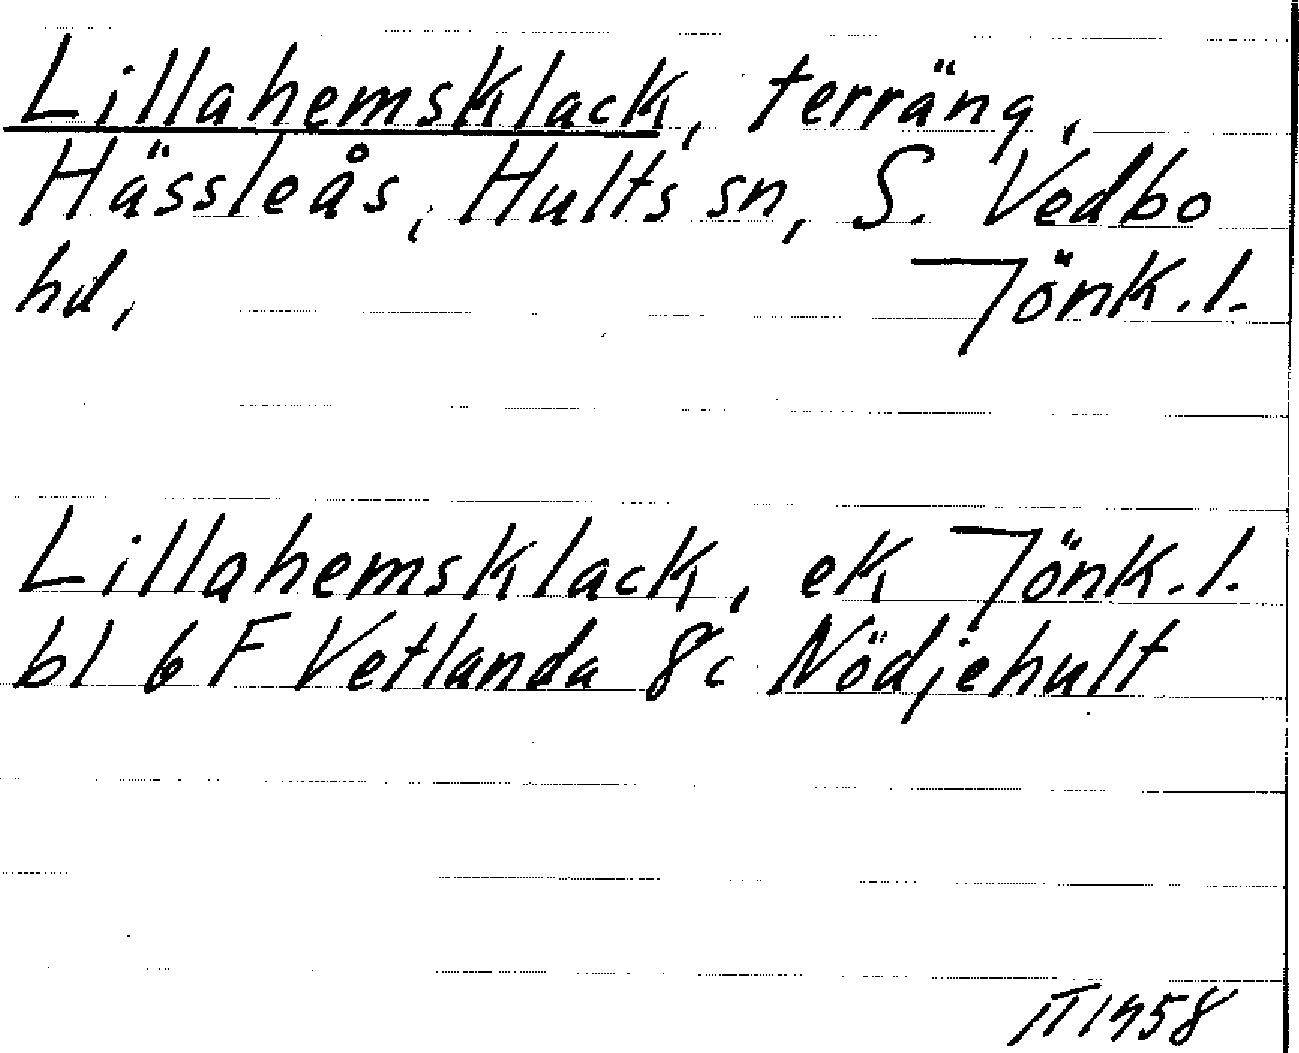 Lillahemsklack, terräng,
Hässleås, Hults sn, S. Vedbo
hd, Jönk.l.
Lillahemsklack, ek Jönk.l.
bl 6 F Vetlanda 8c Nödjehult
IT 1958